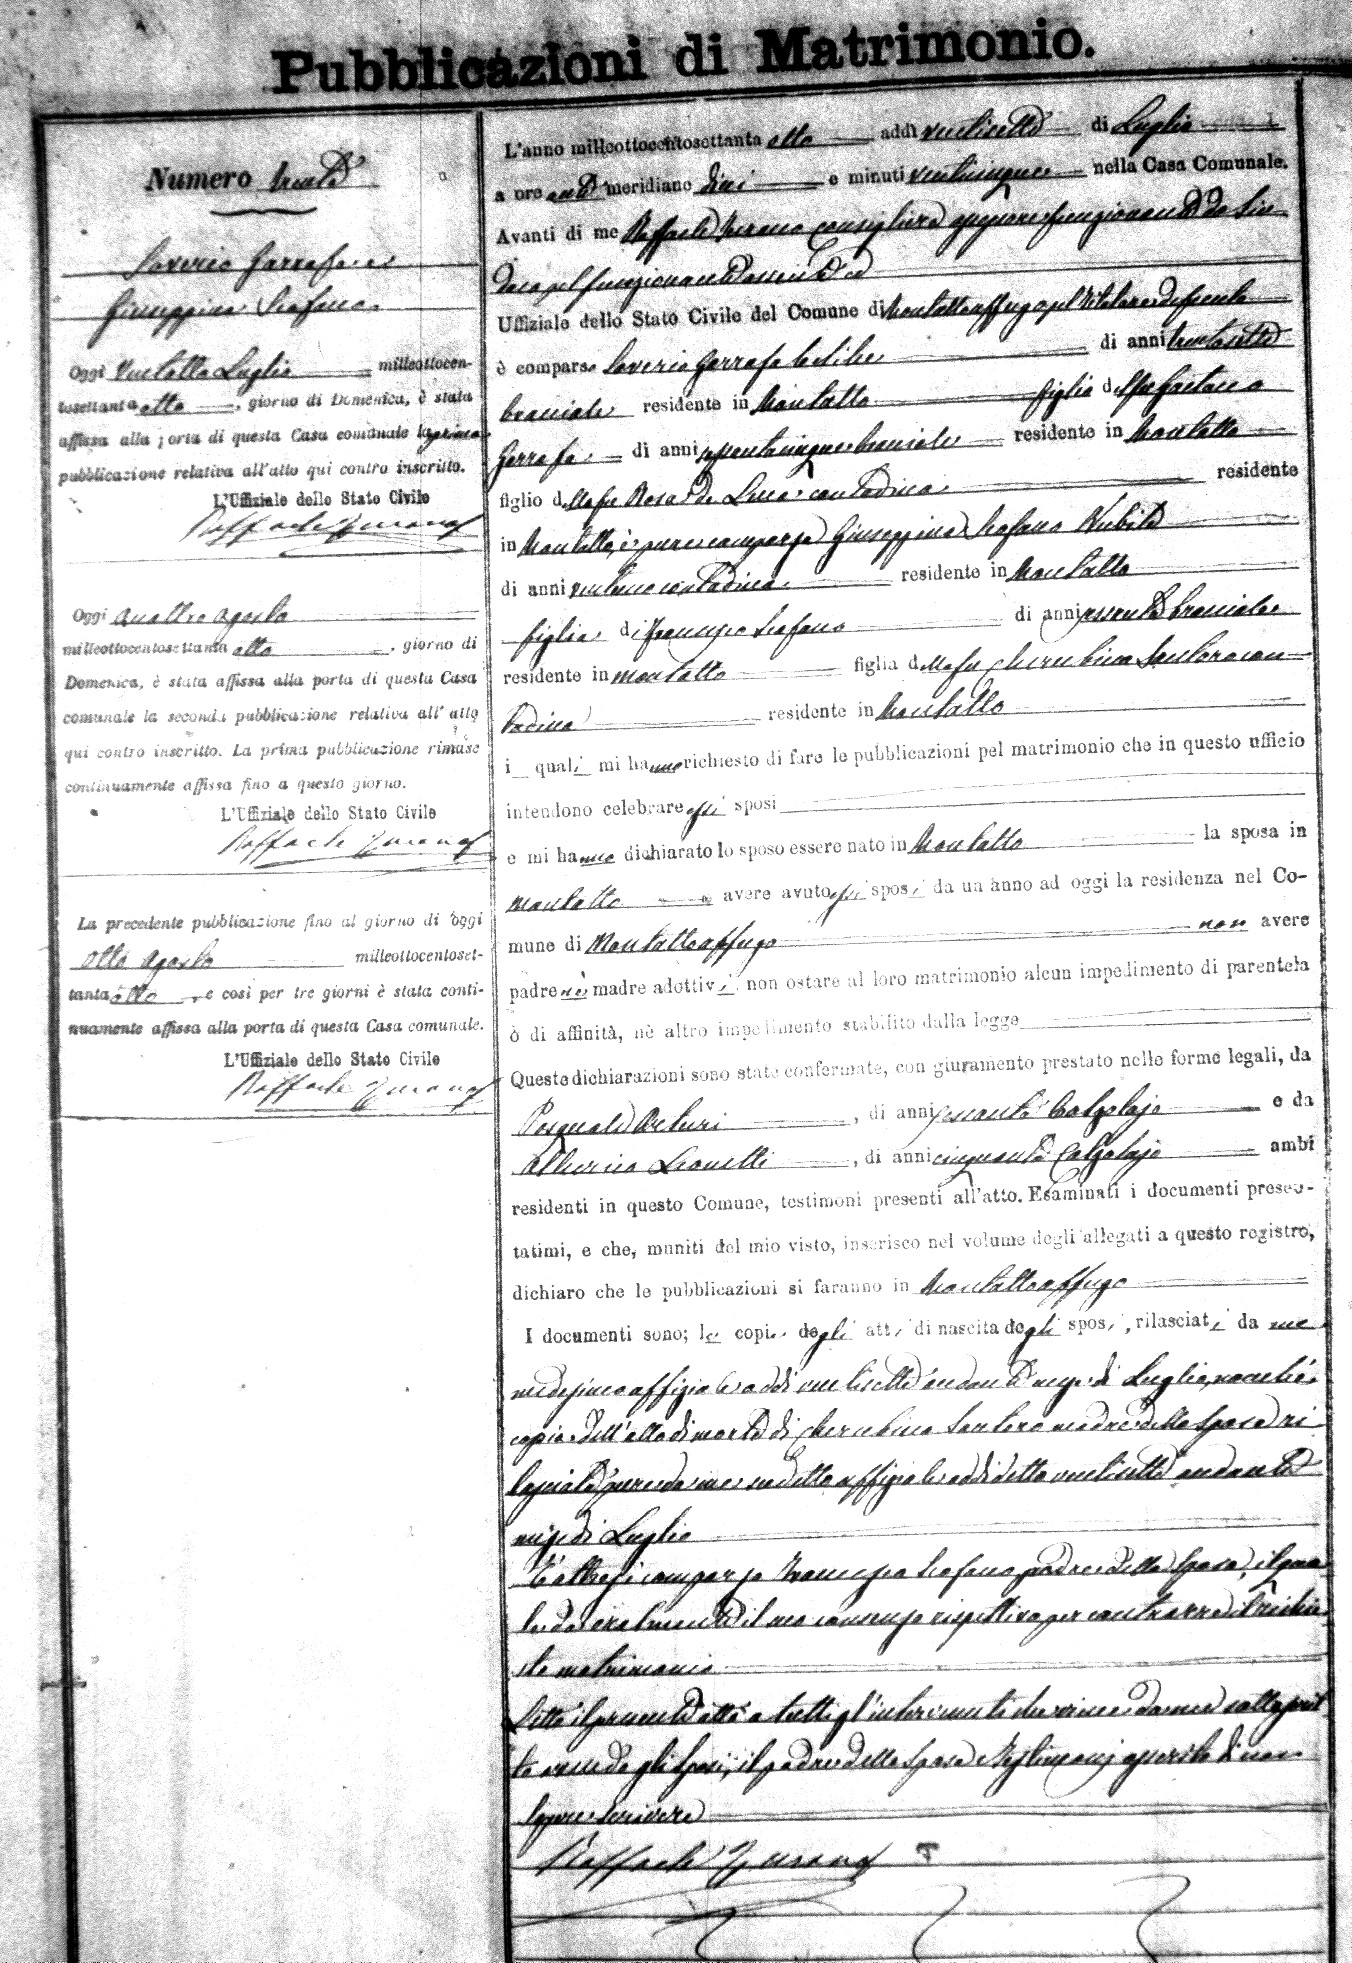 Pubblicazioni di Matrimonio.
Numero trenta
Saverio Garrafa e
Giuseppina Scafano
Oggi Ventotto Luglio milleottocen-
tosettanta otto, giorno di Domenica, è stata
affissa alla porta di questa Casa comunale la prima
pubblicazione relativa all'atto qui contro inscritto.
L'Uffiziale dello Stato Civile
Raffaele
Oggi quattro agosto
milleottocentosettanta otto, giorno di
Domenica, è stata affissa alla porta di questa Casa
comunale la seconda pubblicazione relativa all'atto
qui contro inscritto. La prima pubblicazione rimase
continuamente affissa fino a questo giorno.
L'Uffiziale dello Stato Civile
Raffaele
La precedente pubblicazione fino al giorno di oggi
otto agosto milleottocentoset-
tanta otto, e così per tre giorni è stata conti-
nuamente affissa alla porta di questa Casa comunale.
L'Uffiziale dello Stato Civile
Raffaele
L'anno milleottocentosettanta otto addì ventisette di Luglio
a ore anti meridiane dieci e minuti venticinque nella Casa Comunale.
Avanti di me Raffaele consigliere funzionante da Sin
daco pel funzionante assente ed
Uffiziale dello Stato Civile del Comune di Montaltouffugo pel titolare
è comparso Saverio Garrafa celibe di anni trentasette
bracciale residente in Montalto figlio del fu Gaetano
Garrafa di anni bracciale residente in Montalto
figlio della fu Rosa de Luca contadina residente
in Montalto, è pure comparsa Giuseppina Scafano Nubile
di anni ventuno contadina residente in Montalto
figlia di Francesco Scafano di anni sessanta bracciale
residente in Montalto figlia della fu Cherubina Santoro con
tadina residente in Montalto
i quali mi hanno richiesto di fare le pubblicazioni pel matrimonio che in questo ufficio
intendono celebrare essi sposi
e mi hanno dichiarato lo sposo essere nato in Montalto la sposa in
Montalto avere avuto essi sposi da un anno ad oggi la residenza nel Co-
mune di Montaltouffugo non avere
padre nè madre adottivi, non ostare al loro matrimonio alcun impedimento di parentela
ò di affinità, nè altro impedimento stabilito dalla legge
Queste dichiarazioni sono state confermate, con giuramento prestato nelle forme legali, da
Pasquale Arturi, di anni sessanta Calzolajo e da
Alberico Leonetti, di anni cinquanta Calzolajo ambi
residenti in questo Comune, testimoni presenti all'atto. Esaminati i documenti presen-
tatimi, e che, muniti del mio visto, inserisco nel volume degli allegati a questo registro,
dichiaro che le pubblicazioni si faranno in Montaltouffugo
I documenti sono; le copie degli atti di nascita degli sposi, rilasciati da me
medesimo uffiziale addì ventisette andante mese di Luglio, nonché
copia dell'atto di morte di Cherubina Santoro madre della Sposa ri
lasciata pure da me sudetto uffiziale addì detto ventisette andante
mese di Luglio
È altresì comparso Francesco Scafano, padre della Sposa, il qua
le da oralmente il suo consenso rispettivo per contrarre il richie
sto matrimonio
Letto il presente atto a tutti gl'intervenuti che viene da me sottoscrit
to avendo gli Sposi, il padre della Sposa e testimonj asserito di non
sapere scrivere
Raffaele